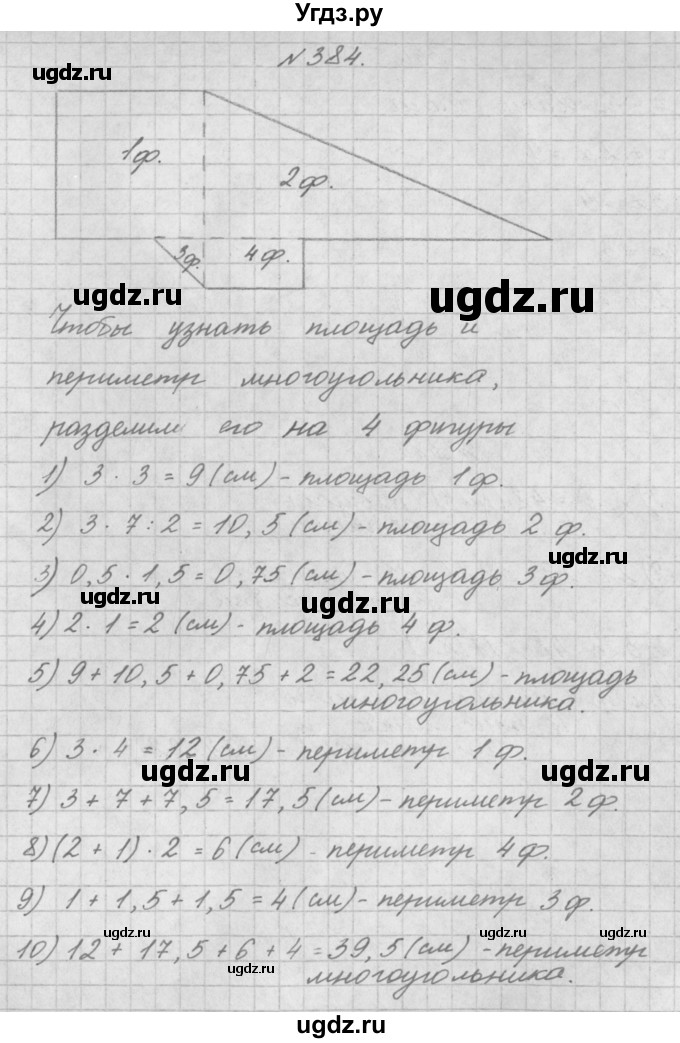 Угдз.ру
N 384.
ugdz.ru
1ф.
2ф.
3ф.
4ф.
ugdz.ru
ugdz.ru
Чтобы узнать площадь и
периметр многоугольника,
разделим его на 4 фигуры
1) 3 · 3 = 9 (см) - площадь 1 ф.
2) 3 · 7 : 2 = 10,5 (см) - площадь 2 ф.
ugdz.ru
3) 0,5 · 1,5 = 0,75 (см) - площадь 3 ф.
ugdz.ru
ugdz.ru
4) 2 · 1 = 2 (см) - площадь 4 ф.
5) 9 + 10,5 + 0,75 + 2 = 22,25 (см) - площадь
многоугольника.
6) 3 · 4 = 12 (см) - периметр 1 ф.
ugdz.ru
ugdz.ru
7) 3 + 7 + 7,5 = 17,5 (см) - периметр 2 ф.
8) (2 + 1) · 2 = 6 (см) - периметр 4 ф.
9) 1 + 1,5 + 1,5 = 4 (см) - периметр 3 ф.
ugdz.ru
ugdz.ru
10) 12 + 17,5 + 6 + 4 = 39,5 (см) - периметр
многоугольника.
ugdz.ru
ugdz.ru